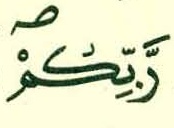 رَّبِّكُمْۖ